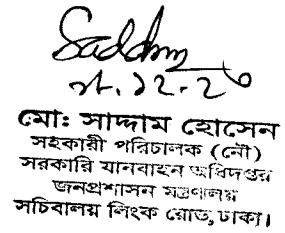 Saddam
মোঃ সাদ্দাম হোসেন
সহকারী পরিচালক (নৌ)
সরকারি যানবাহন অধিদপ্তর
জনপ্রশাসন মন্ত্রণালয়
সচিবালয় লিংক রোড, ঢাকা।